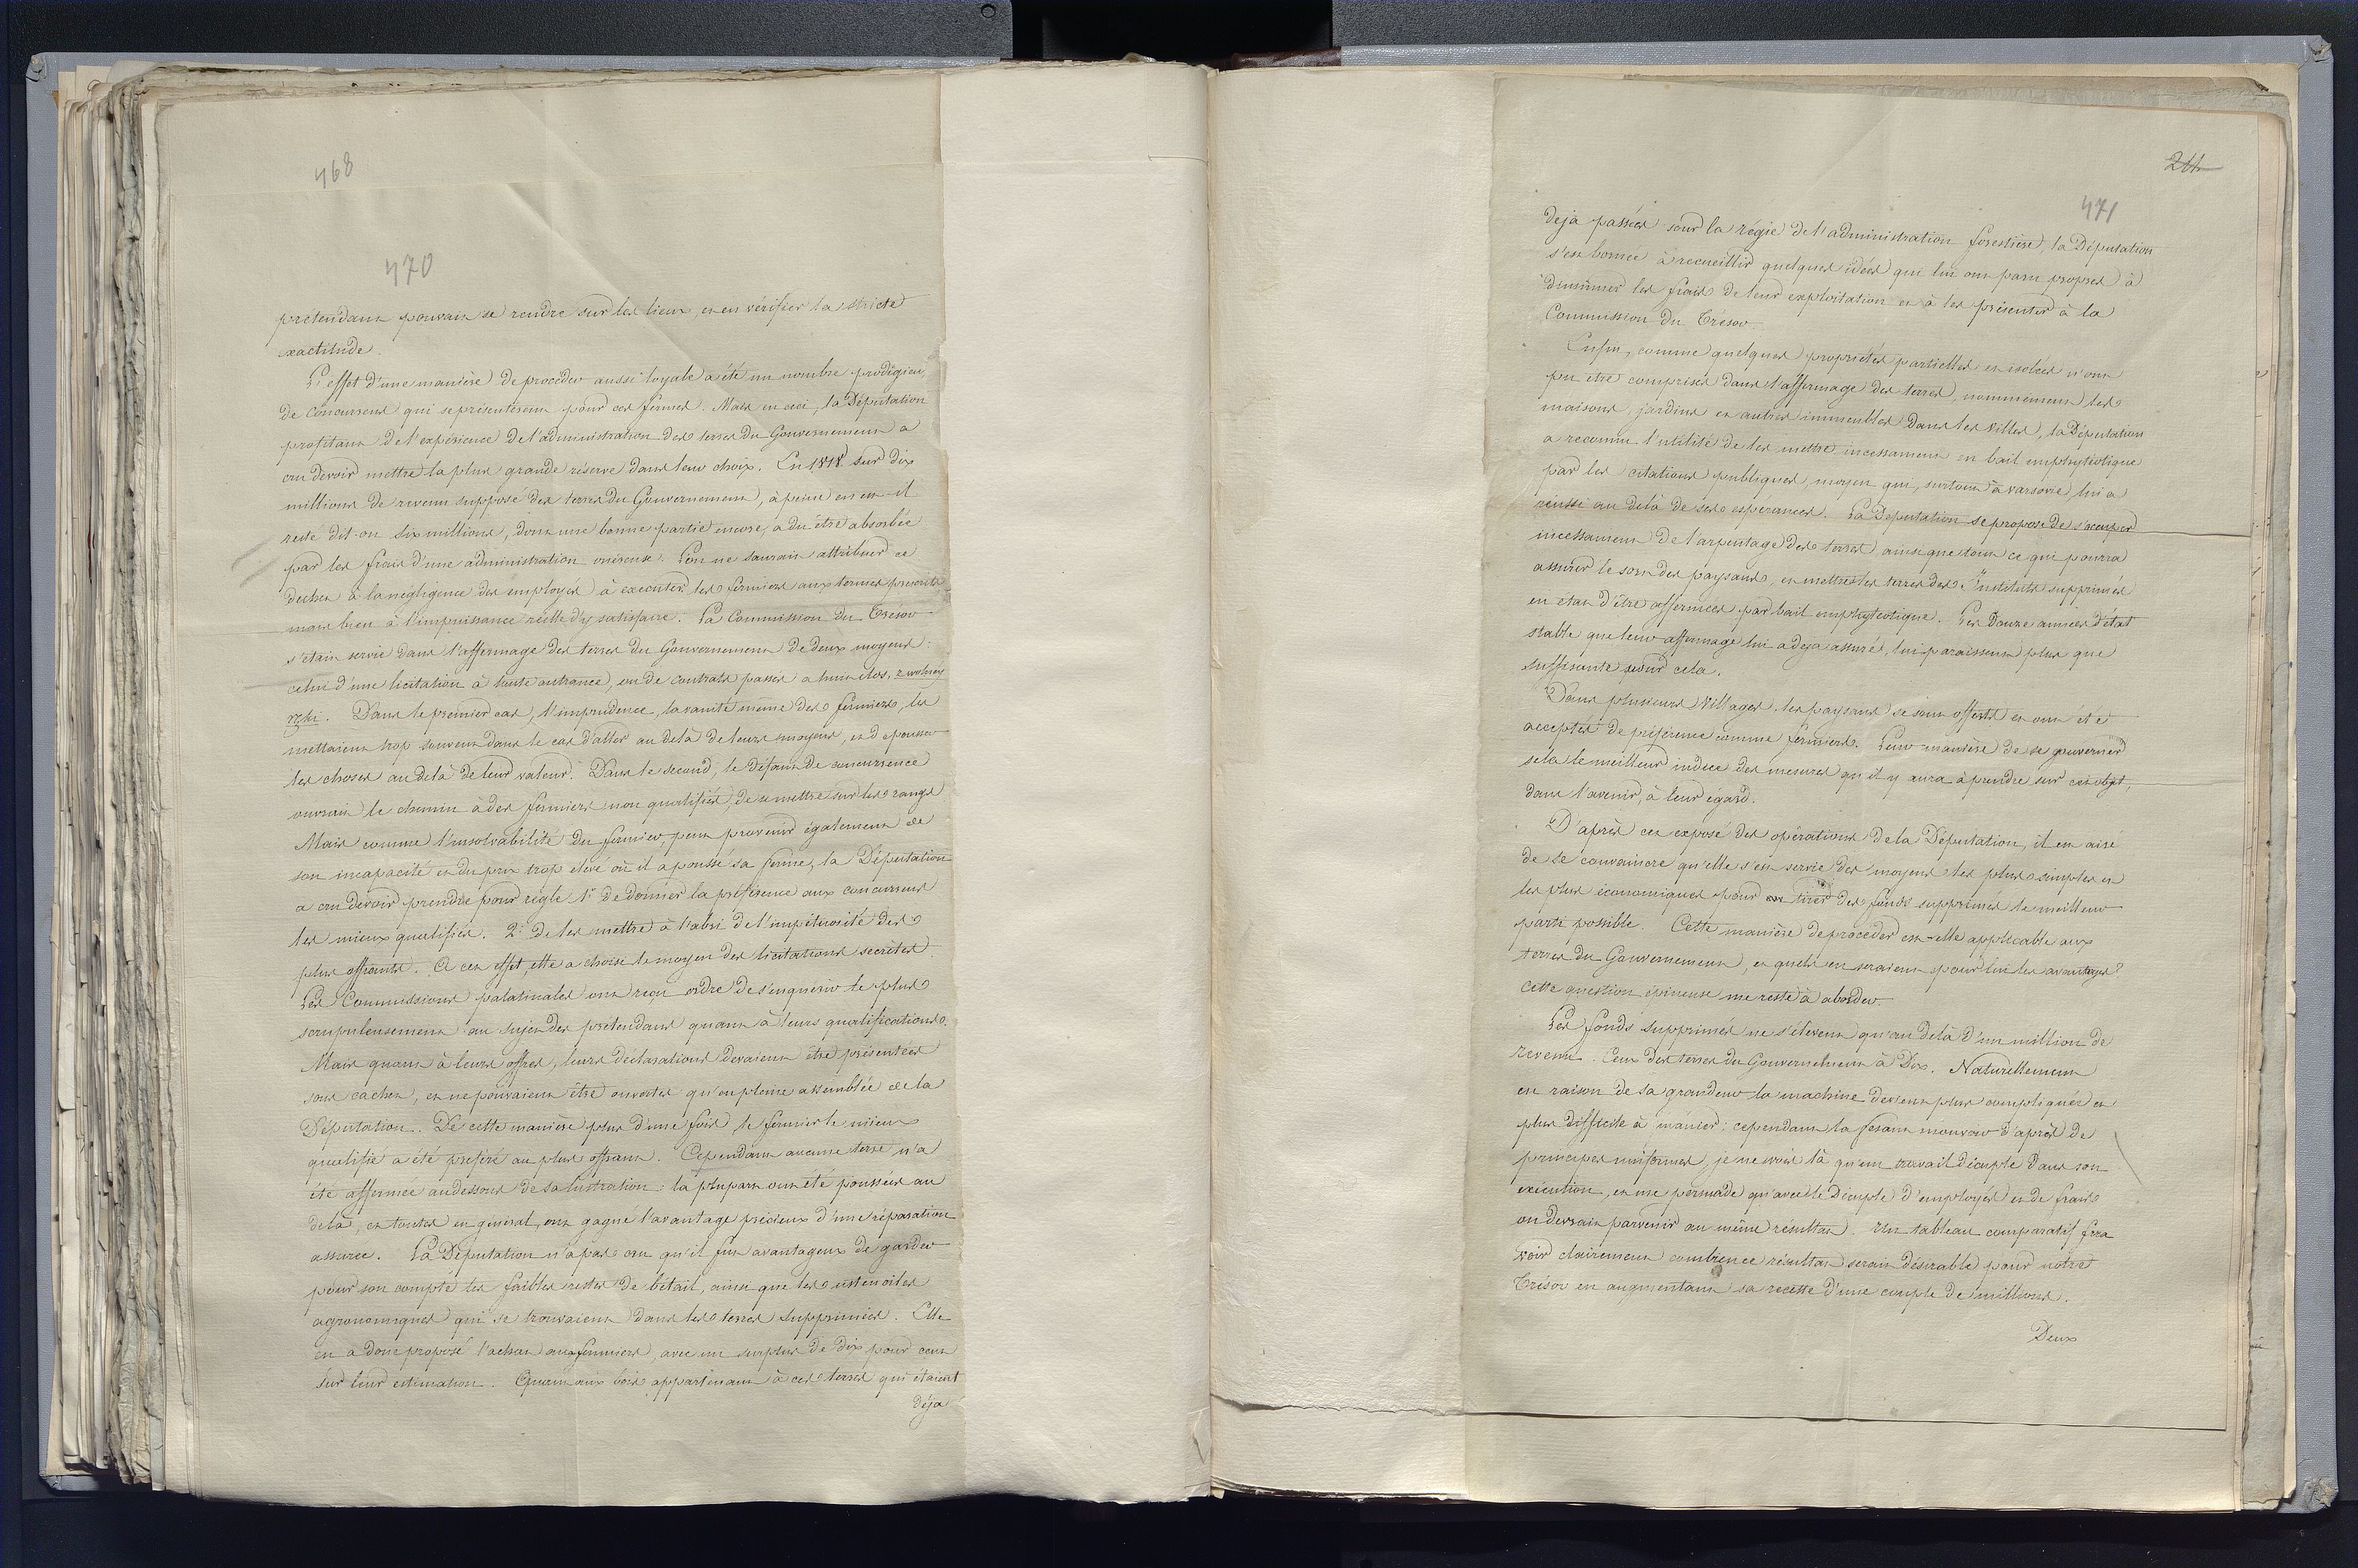 468
470
prétendant pouvait se rendre sur les lieux, et en vérifier la stricte
exactitude.
L'effet d'une manière de procéder aussi loyale a été un nombre prodigieu
de Concurrens qui se présentèrent pour ces fermes. Mais en ceci, la Députation
profitant de l'expérience de l'administration des terres du Gouvernement a
cru devoir mettre la plus grande réserve dans leur choix. En 1818. sur dix
millions de revenu supposé des terres du Gouvernement, à peine en est-il
resté dit-on six millions, dont une bonne partie encore, a du être absorbée
par les frais d'une administration onéreuse. L'on ne saurait attribuer ce
dechet à la négligence des employés à executer les fermiers aux termes prescrits
mais bien à l'impuissance réelle d'y satisfaire. La Commission du Tresor
s'était servie dans l'affermage des terres du Gouvernement de deux moyens:
celui d'une licitation à toute outrance, ou de contrats passés a huis clos, z wolney
ręki. Dans le premier cas, l'imprudence, la vanité même des fermiers, les
mettaient trop souvent dans le cas d'aller au delà de leurs moyens, et de pousser
les choses au delà de leur valeur. Dans le second, le défaut de concurrence
ouvrait le chemin à des fermiers non qualifiés, de se mettre sur les rangs
Mais comme l'insolvabilité du fermier, peut provenir également de
son incapacité et du prix trop élevé où il a poussé sa ferme, la Députation
a cru devoir prendre pour règle 1° de donner la préférence aux concurrens
les mieux qualifiés. 2° de les mettre à l'abri de l'impétuosité des
plus offrants. A cet effet, elle a choisi le moyen des licitations secrètes.
Les Commissions palatinales ont reçu ordre de s'enquérir le plus
scrupuleusement au sujet des prétendans quant à leurs qualifications.
Mais quant à leurs offres, leurs déclarations devaient être présentées
sous cachet, et ne pouvaient être ouvertes qu'en pleine assemblée de la
Députation. De cette manière plus d'une fois, le fermier le mieux
qualifié a été préféré au plus offrant. Cependant aucune terre n'a
été affermée au dessous de sa lustration: la plupart ont été poussées au
delà, et toutes en général, ont gagné l'avantage précieux d'une réparation
assurée. La Députation n'a pas cru qu'il fut avantageux de garder
pour son compte les faibles restes de bétail, ainsi que les ustensiles
agronomiques qui se trouvaient dans les terres supprimées. Elle
en a donc proposé l'achat aux fermiers, avec un surplus de dix pour cent
sur leur estimation. Quant aux bois appartenant à ces terres qui étaient
déja
211
471
déja passées sous la régie de l'administration forestière, la Députation
s'est bornée à recueillir quelques idées qui lui ont paru propres à
diminuer les frais de leur exploitation et à les présenter à la
Commission du Trésor.
Enfin, comme quelques propriétés partielles et isolées n'ont
pu être comprises dans l'affermage des terres, nommément les
maisons, jardins et autres immeubles dans les villes, la Députation
a reconnu l'utilité de les mettre incessament en bail emphytéotique
par les citations publiques, moyen qui, surtout à varsovie, lui a
réussi au delà de ses espérances. La Députation se propose de s'occuper
incessament de l'arpentage des terres, ainsi que tout ce qui pourra
assurer le sort des paysans, et mettre les terres des Instituts supprimés
en état d'être affermées par bail emphytéotique. Les Douze années d'état
stable que leur affermage lui a déja assuré, lui paraissent plus que
suffisants pour cela.
Dans plusieurs villages, les paysans se sont offerts et ont été
acceptés de préférence comme fermiers. Leur manière de se gouverner
sela le meilleur indice des mesures qu'il y aura à prendre sur cet objet,
dans l'avenir, à leur égard.
D'après cet exposé des opérations de la Députation, il est aisé
de se convaincre qu'elle s'est servie des moyens les plus simples et
les plus économiques pour tirer des fonds supprimés le meilleur
parti possible. Cette manière de procéder est-elle applicable aux
terres du Gouvernement, et quels en seraient pour lui les avantages?
cette question épineuse me reste à aborder.
Les fonds supprimés ne s'élevent qu'au delà d'un million de
revenu. Ceux des terres du Gouvernement à Dix. Naturellement
en raison de sa grandeur la machine devient plus compliquée et
plus difficile à manier; cependant la fesant mouvoir d'après de
principes uniformes, je ne vois là qu'un travail décuplé dans son
exécution, et me persuade qu'avec le Décuple d'employés et de frais
on devrait parvenir au même résultat. Un tableau comparatif fera
voir clairement combien ce résultat serait désirable pour notre
Trésor en augmentant sa recette d'une couple de millions.
Deux